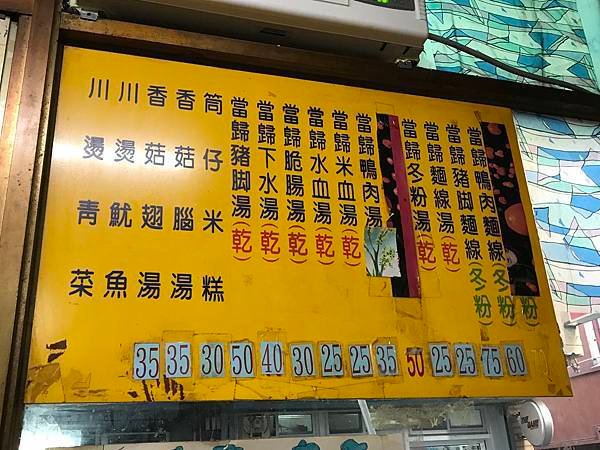 (冬粉)
當歸鴨肉麵線(冬粉)
當歸豬脚麵線(冬粉)
當歸麵線湯(乾)
當歸冬粉湯(乾)
當歸鴨肉湯
當歸米血湯(乾)
當歸水血湯(乾)
當歸脆腸湯(乾)
當歸下水湯(乾)
當歸豬脚湯(乾)
筒仔米糕
香菇腦湯
香菇翅湯
川燙魷魚
川燙青菜
35 35 30 50 40 30 25 25 35 50 25 25 75 60